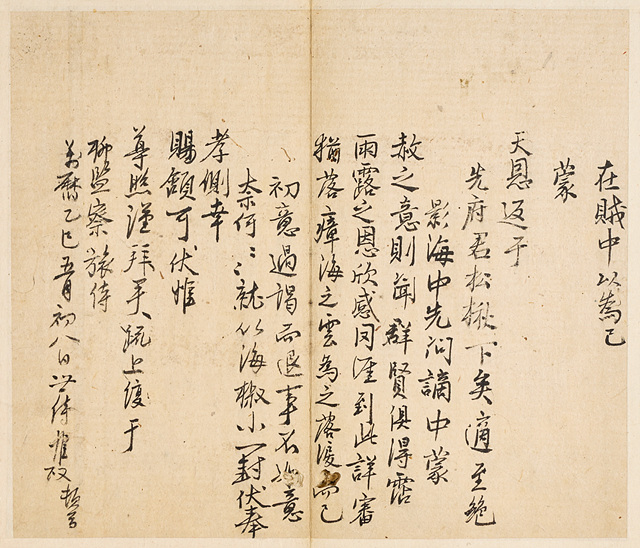 在賊中以爲己
蒙
天恩返于
先府君松楸下矣適至絶
影海中先問謫中蒙
赦之意則萠群賢俱得霑
雨露之恩欣感罔涯到此詳審
猶落瘴海之雲爲之落淚而已
初意過謁而退事不如意
奈何〻〻就以海椒小一封伏奉
孝側幸
賜領可伏惟
尊照謹拜疏上復于
柳監察旅侍
萬曆乙巳五月初八日 侍 惟政 頓首